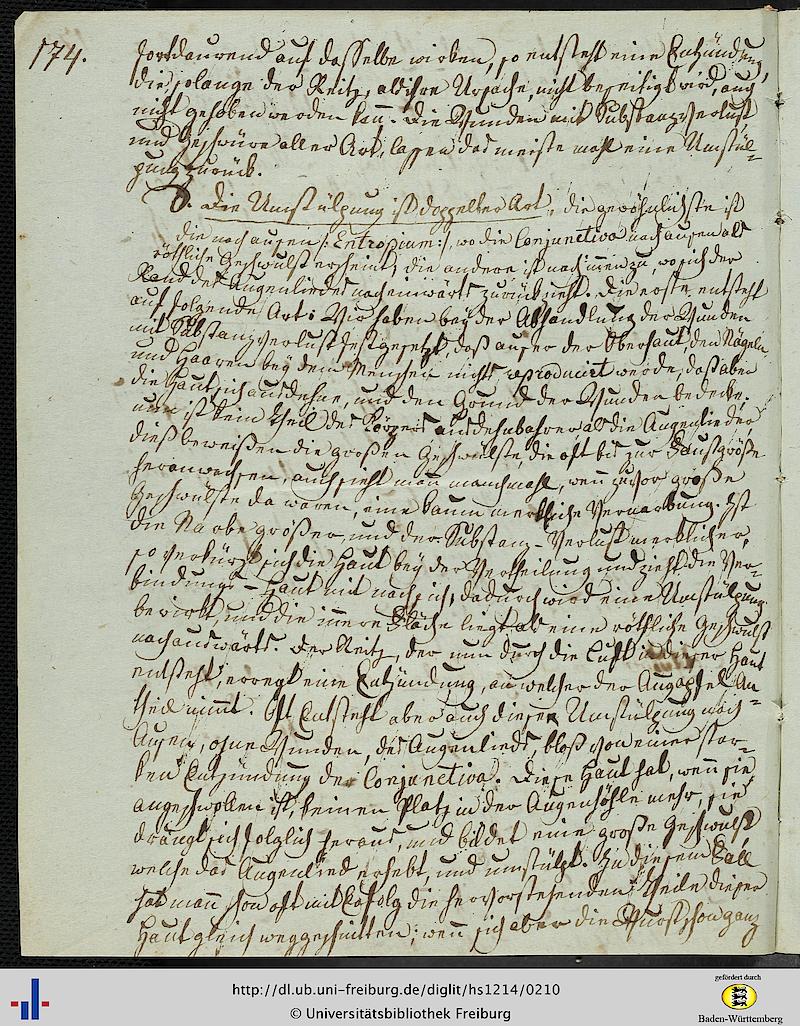 174.
fortdaurend auf dasselbe wirken, so entsteht eine Entzündung,
die solange der Reitz, als ihre Ursache, nicht beseitigt wird, auch
nicht gehoben werden kañ. Die Wunden mit Substanzverlust,
und Geschwüre aller Art, lassen das meiste mahl eine Umstül-
pung zurück.
Die Umstülpung ist doppelter Art, die gewöhnlichste ist
die nach außen /: Entropium :/, wo die Conjunctiva nach außen als
röthliche Geschwulst erscheint; die andere ist nach innen zu, wo sich der
Rand des Augenliedes nach einwärts zurückzieht. Die erste entsteht
auf folgende Art: Wir haben bey der Abhandlung der Wunden
mit Substanzverlust festgesetzt, daß außer der Oberhaut, den Nägeln,
und Haaren bey dem Menschen nichts reproducirt werde, daß aber
die Haut sich ausdehne, und den Grund der Wunden bedecke.
nun ist kein Theil des Körpers ausdehnbahrer als die Augenlieder,
dieß beweißen die großen Geschwülste, die oft bis zur Faustgröße
heranwachsen, auch sieht man manchmahl, weñ zuvor große
Geschwülste da waren, eine kaum merkliche Vernarbung. Ist
die Narbe größer, und der Substanz-Verlust merklicher,
so verkürzt sich die Haut bey der Vertheilung und zieht die Ver-
bindungs-Haut mit nach sich, dadurch wird eine Umstülpung
bewirkt, und die innere Fläche liegt als eine röthliche Geschwulst
nach auswärts. Der Reitz, der nun durch die Luft in dieser Haut
entsteht, erregt eine Entzündung, an welcher der Augapfel An-
theil nimmt. Oft Entsteht aber auch dieser Umstülpung nach
Außen, ohne Wunden, des Augenlieds, bloß von einer star-
ken Entzündung der Conjunctiva. Diese Haut hat, weñ sie
angeschwollen ist, keinen Platz in der Augenhöhle mehr, sie
drängt sich folglich heraus, und bildet eine große Geschwulst
welche das Augenlied erhebt, und umstülpt. In diesem Fall
hat mañ schon oft mit Erfolg die hervorstehenden Theile dieser
Haut gleich weggeschnitten; weñ sich aber die Wurst schon ganz
http://dl.ub.uni-freiburg.de/diglit/hs1214/0210
© Universitätsbibliothek Freiburg
gefördert durch
Baden-Württemberg